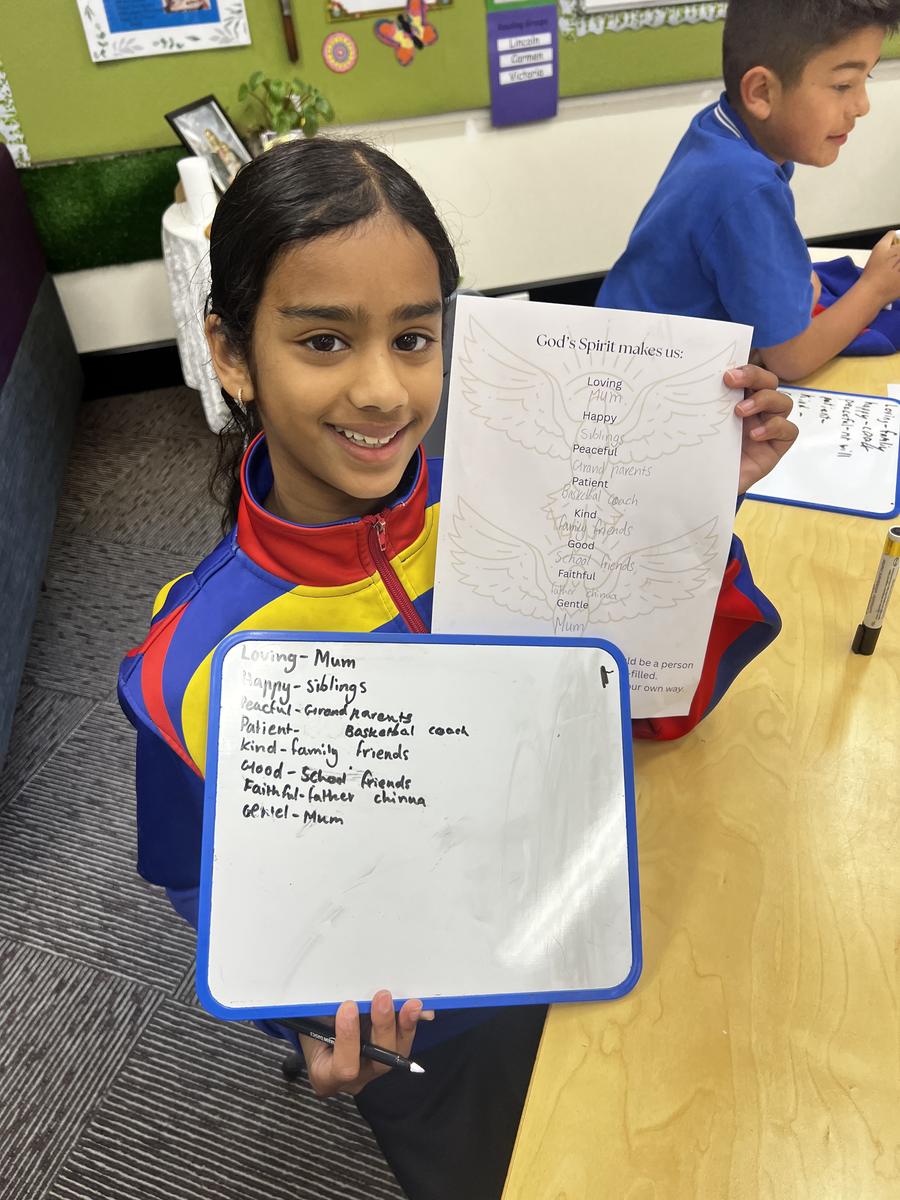 Reading Groups
Lincoln
Carmen
Victoria
God's Spirit makes us:
Loving
Mum
Happy
Siblings
Peaceful
Grand parents
Patient
Basketbal coach
Kind
family friends
Good
School friends,
Faithful
father chinna
Gentle
Mum
ld be a person
-filled.
our own way
Loving- Mum
Happy- siblings
Peacful- Grand parents
Patient- Basketbal coach
Kind- family friends
Good - School friends
Faithful- father chinna
Gentel- Mum
Loving-family
happy-coach
peaceful-nt will
patient-
kind-